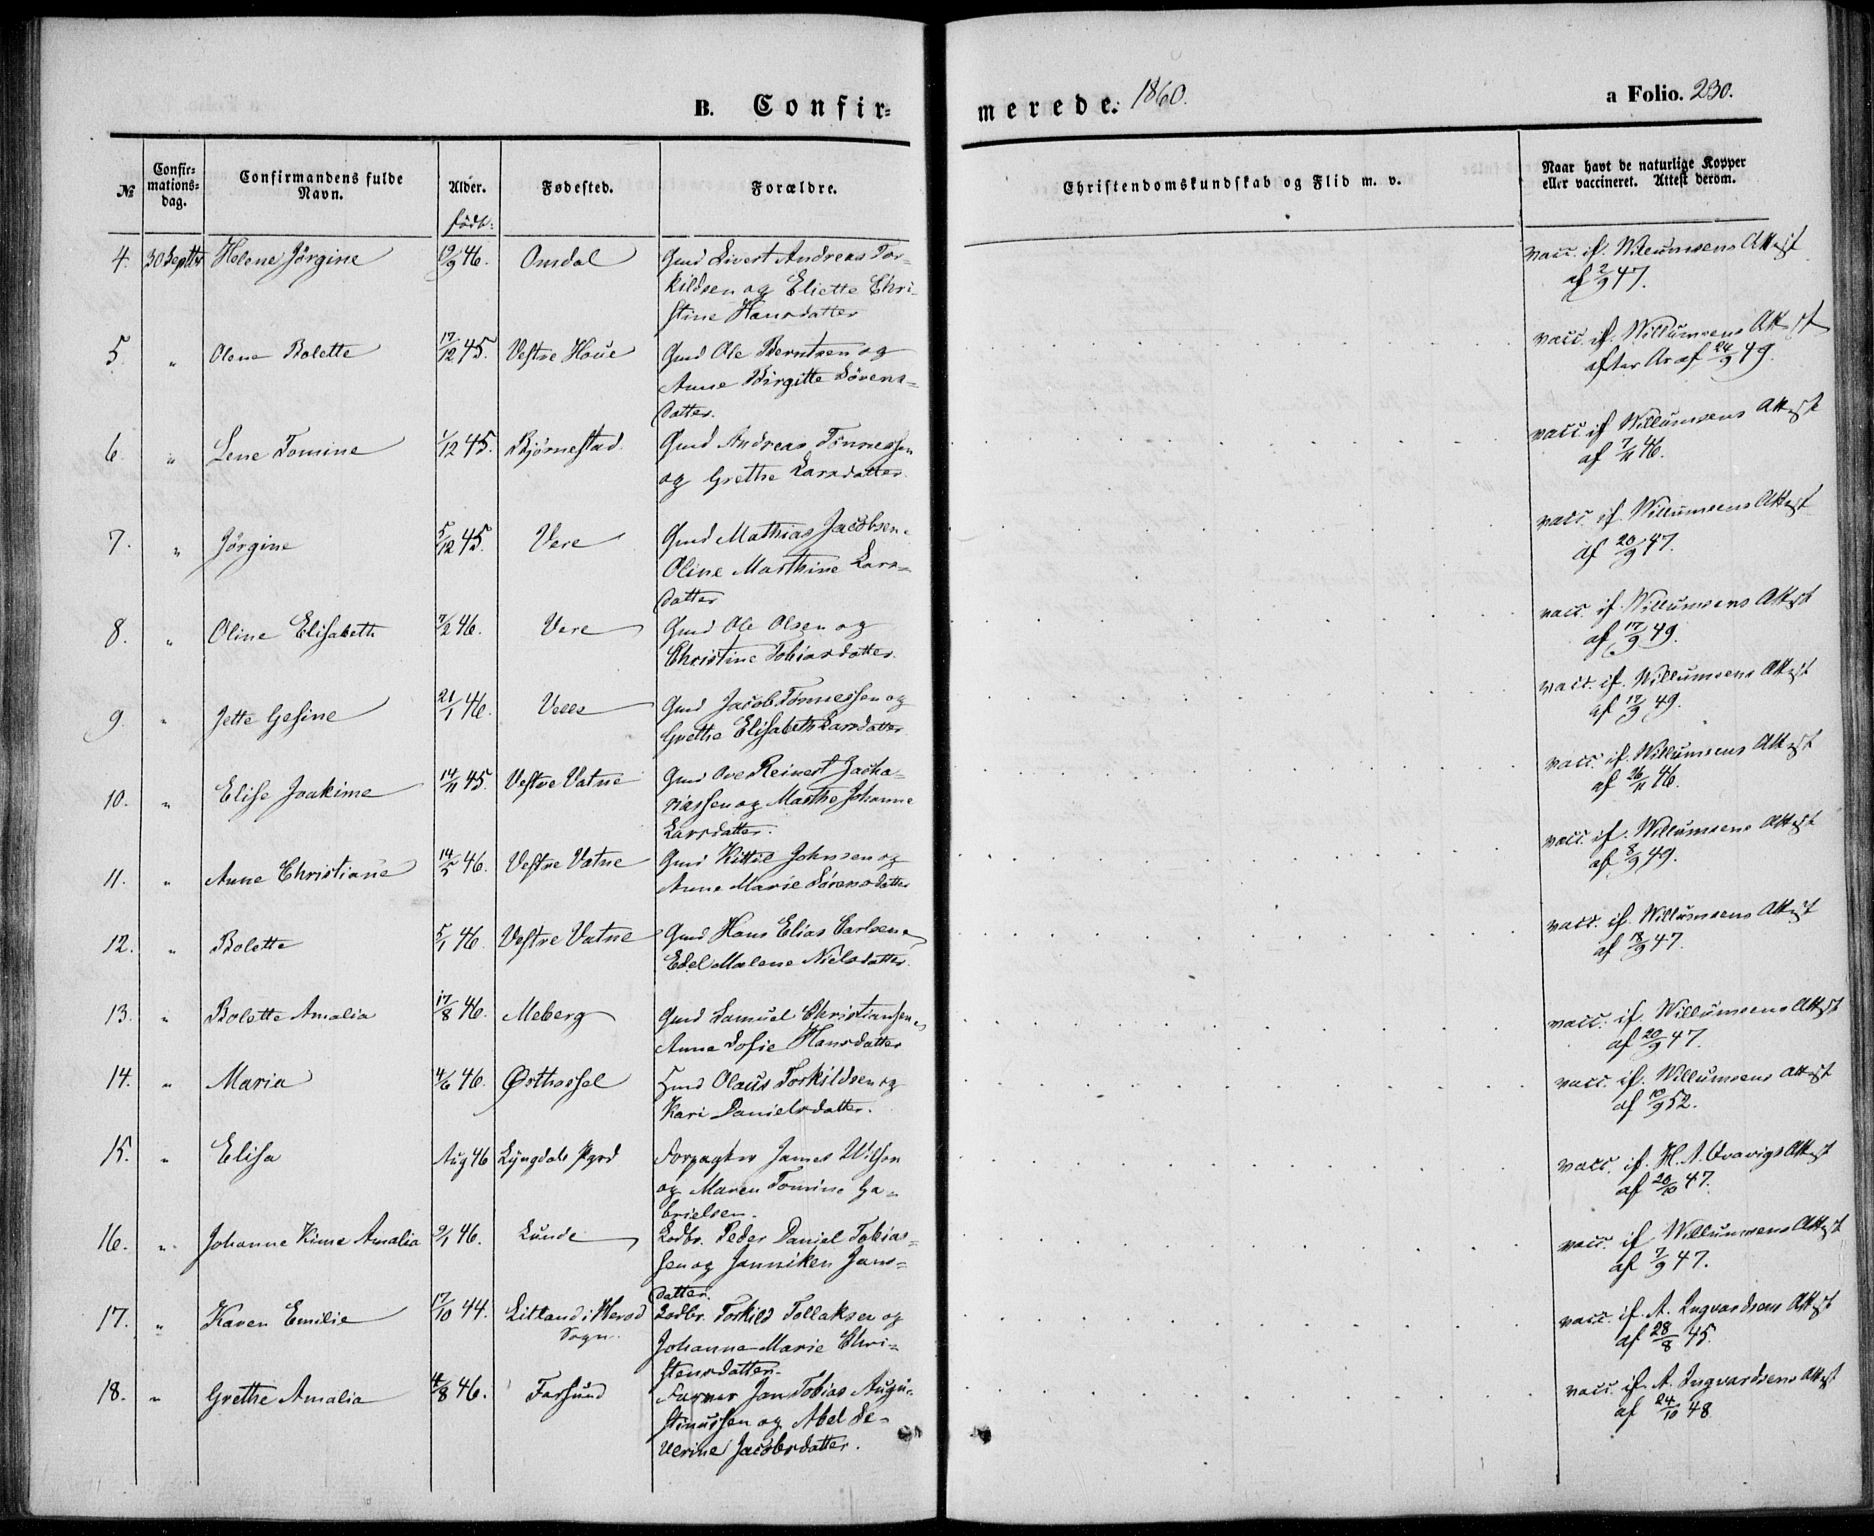 B. Confir-
merede. 1860.
a Folio. 230.
№
Confir-
mations-
dag.
Confirmandens fulde
Navn.
Alder.
født.
Fødested.
Forældre.
Christendomskundskab og Flid m. v.
Naar havt de naturlige Kopper
eller vaccineret. Attest derom.
4. 30 Septbr Helene Jørgine 46. Omdal Gmd Sivert Andreas Tor-
kildsen og Eliette Chri-
stine Hansdatter
vacc. if. Willumsens Attest
af 2/9 47.
5. " Olene Bolette 17/12 45. Vestre Houe Gmd Ole Berntsen og
Anne Birgitte Sørens-
datter.
vacc. if. Willumsens Attest
efter Ar af 24/9 49.
6. " Lene Tomine 1/12 45. Bjørnestad Gmd Andreas Tønnessen
og Grethe Larsdatter.
vacc. if Willumsens Attest
af 7/11 46.
7. " Jørgine 5/12 45. Vere Gmd Mathias Jacobsen
Oline Marthine Lars-
datter
vacc. if Willumsens Attest
af 20/9 47.
8. " Oline Elisabeth 7/2 46. Vere Gmd Ole Olsen og
Christine Tobiasdatter.
vacc if Willumsens Attest
af 17/9 49.
9. " Jette Gesine 21/1 46. Gmd Jacob Tønnessen og
Grethe Elisabeth Larsdatter
vacc. if. Willumsens Attest
af 17/9 49.
10. " Elise Joakime 14/11 45. Vestre Vatne Gmd Ove Reinert Zacha-
riassen og Marthe Johanne
Larsdatter.
vacc. if. Willumsens Attest
af 26/11 46.
11. " Anne Christiane 14/5 46. Vestre Vatne Gmd Kittil Johnsen og
Anne Marie Sørensdatter
vacc. if. Willumsens Attest
af 8/9 49.
12. " Bolette 5/1 46. Vestre Vatne Gmd Hans Elias Carlsen
Edel Malene Nielsdatter.
vacc. if. Willumsens Attest
af 47.
13. " Bolette Amalia 17/8 46. Meberg Gmd Samuel Christiansen
Anne Sofie Hansdatter
vacc. if. Willumsens Attest
af 20/9 47.
14. " Maria 4/6 46. Østhassel Hmd Olaus Torkildsen og
Kari Danielsdatter.
vacc. if. Willumsens Attest
af 10/9 52.
15. " Elisa Aug 46 Lyngdals Pgrd Forpagter James Wilson
og Maren Tomine Ga-
brielsen.
vacc. if. H. A. Attest
af 20/10 47.
16. " Johanne Kime Amalia 9/1 46. Lunde Lodbr. Peder Daniel Tobias-
sen og Janniken Jans-
datter.
vacc. if Willumsens Attest
af 7/9 47.
17. " Karen Emilie 17/10 44. Litland i Herad
Sogn. Lodbr. Torkild Tollaksen og
Johanne Marie Chri-
stensdatter.
vacc. if. A. Ingvardsens Attest
af 28/8 45.
18. " Grethe Amalia 4/8 46. Farsund Farver Jan Tobias Augu-
stinussen og Abel Se-
verine Jacobsdatter.
vacc. if. A. Ingvardsens Attest
af 24/10 48